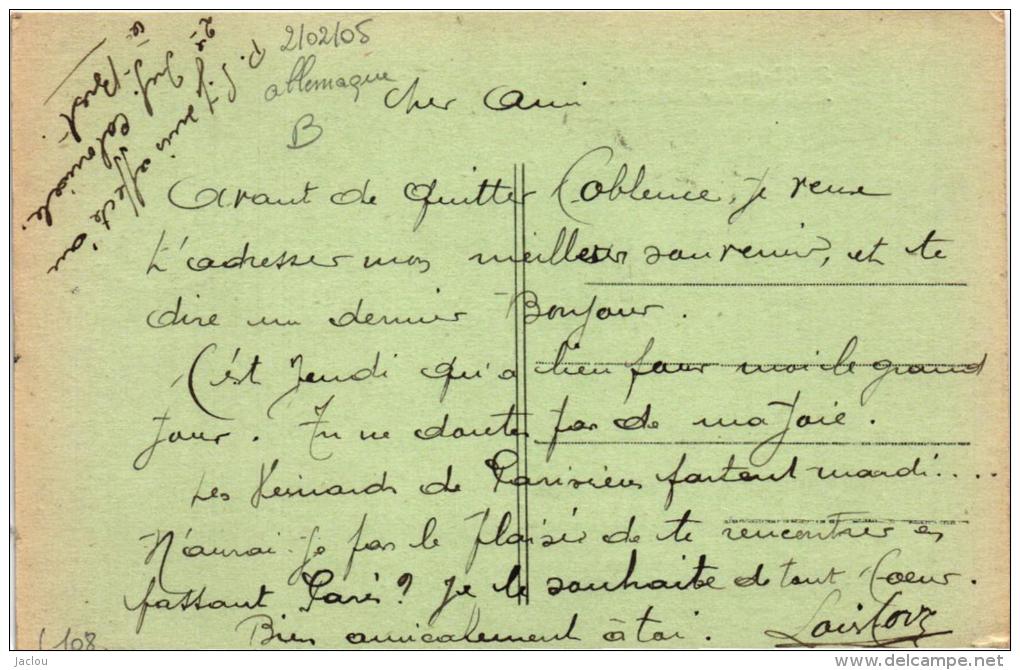 2/02/05
Allemagne
B
P.S. Je suis affecté au
2e Inf. Coloniale
à Brest
Cher Ami
Avant de quitter Coblence, je veux
t'adresser mon meilleur souvenir, et te
dire un dernier Bonjour.
C'est Jeudi qu'a lieu pour moi le grand
jour. Tu ne doutes pas de ma Joie.
Les de Parisiens partent mardi....
N'aurai-je pas le plaisir de te rencontrer en
passant Paris? Je le souhaite de tout Coeur.
Bien amicalement à toi.
108
Jaclou
www.delcampe.net